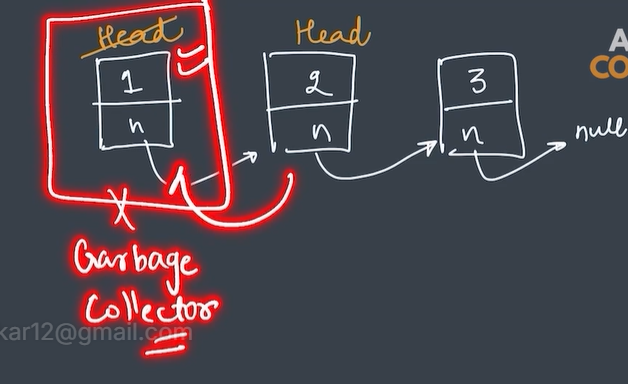 Head Head
1 2 3
n n n null
Garbage
Collector
kar12@gmail.com
A
CO